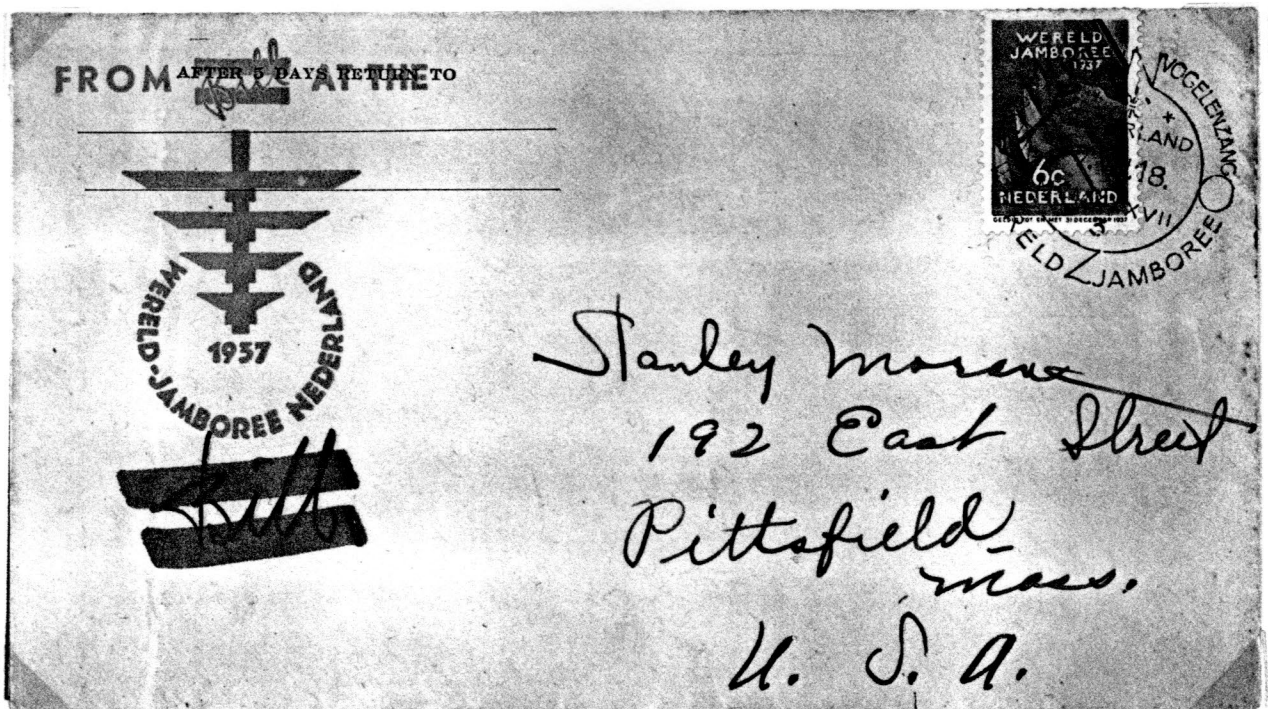 AFTER 5 DAYS RETURN TO
FROM Bill AT THE
1937
WERELD-JAMBOREE NEDERLAND
Bill
WERELD
JAMBOREE
1937
6c
NEDERLAND
GELDIG TOT EN MET 31 DECEMBER 1937
VOGELENZANG
LAND
18.
XVII
RELD JAMBOREE
Stanley
192 East Street
Pittsfield
Mass.
U. S. A.